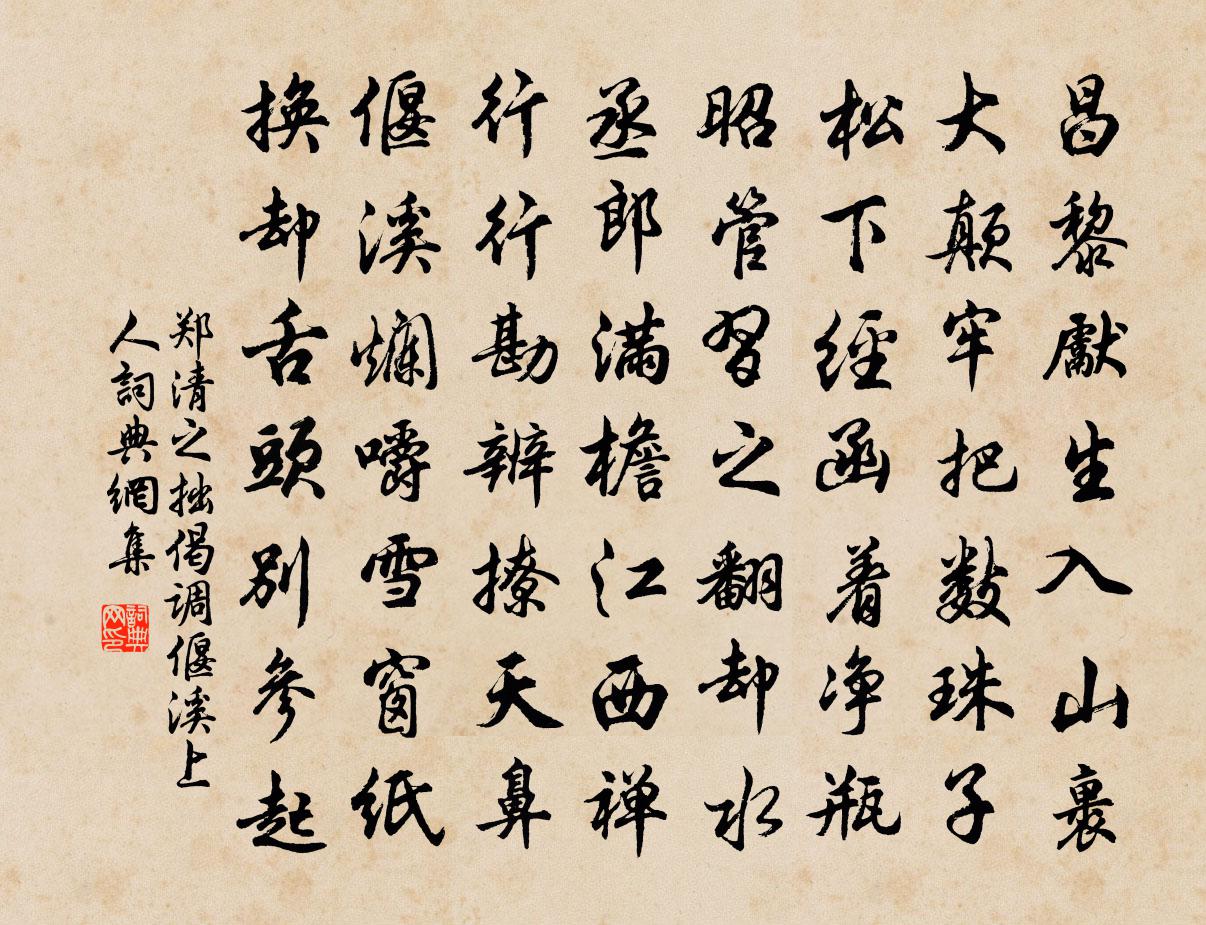 昌黎獻生入山裹
大颠牢把数珠子
松下經函着净瓶
昭管習之翻却水
丞郎满檐江西禅
行行勘辨撩天鼻
偃溪爛嚼雪窗紙
换却舌頭别参起
郑清之拙偈调偃溪上
人詞典網集
詞典网印